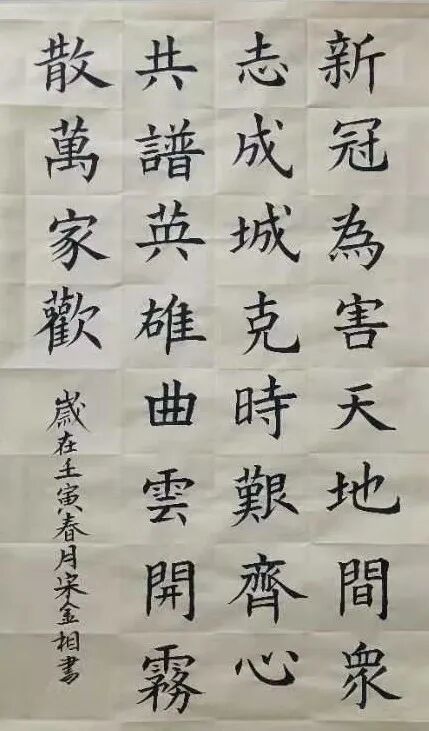 新冠為害天地間眾
志成城克時艱齊心
共譜英雄曲雲開霧
散萬家歡
歲在壬寅春月宋金相書